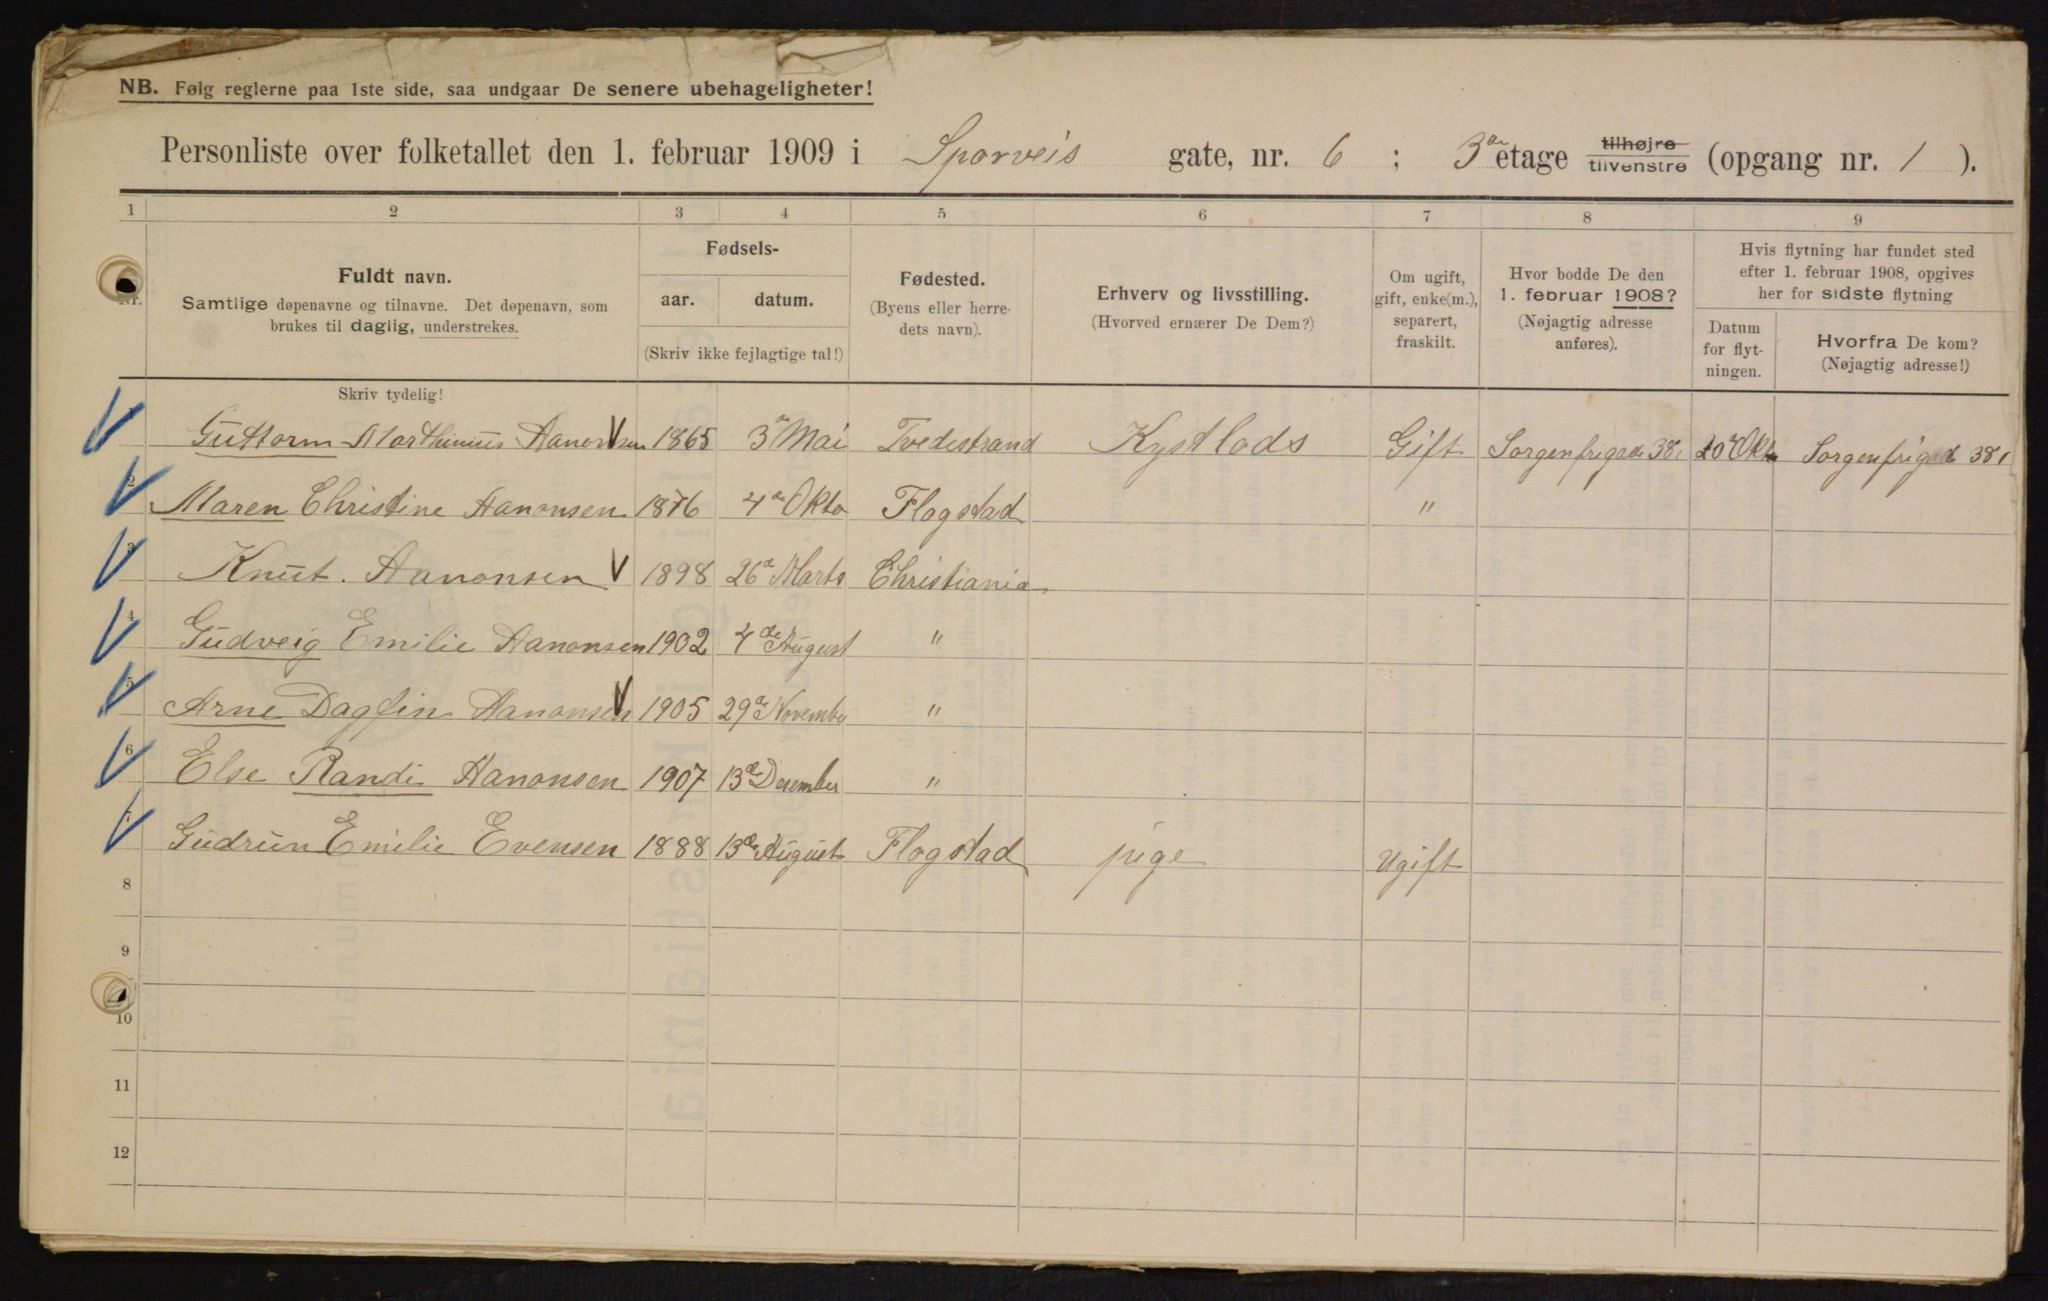 NB. Følg reglerne paa 1ste side, saa undgaar De senere ubehageligheter!
Personliste over folketallet den 1. februar 1909 i Sporveis gate, nr. 6 ; 3die etage tilhøjre tilvenstre (opgang nr. 1 ).
1 2 3 4 5 6 7 8 9
Nr.
Fuldt navn.
Samtlige døpenavne og tilnavne. Det døpenavn, som
brukes til daglig, understrekes.
Fødsels-
aar. datum.
(Skriv ikke fejlagtige tal!)
Fødested.
(Byens eller herre-
dets navn).
Erhverv og livsstilling.
(Hvorved ernærer De Dem?)
Om ugift,
gift, enke(m.),
separert,
fraskilt.
Hvor bodde De den
1. februar 1908?
(Nøjagtig adresse
anføres).
Hvis flytning har fundet sted
efter 1. februar 1908, opgives
her for sidste flytning
Datum
for flyt-
ningen.
Hvorfra De kom?
(Nøjagtig adresse!)
Skriv tydelig!
1 Guttorm Marthinius Aanonsen 1865 3de Mai Tvedestrand Kystlods Gift Sorgenfrigad. 38, 20de Okt Sorgenfrigad 38,
2 Maren Christine Aanonsen 1876 4de Okto Flagstad "
3 Knut. Aanonsen 1898 26de Marts Christiania
4 Gudveig Emilie Aanonsen 1902 4de August "
5 Arne Dagfin Aanonsen 1905 29de Novembe "
6 Else Randi Aanonsen 1907 13de Desember "
7 Gudrun Emilie Evensen 1888 13de August Flagstad pige Ugift
8
9
10
11
12